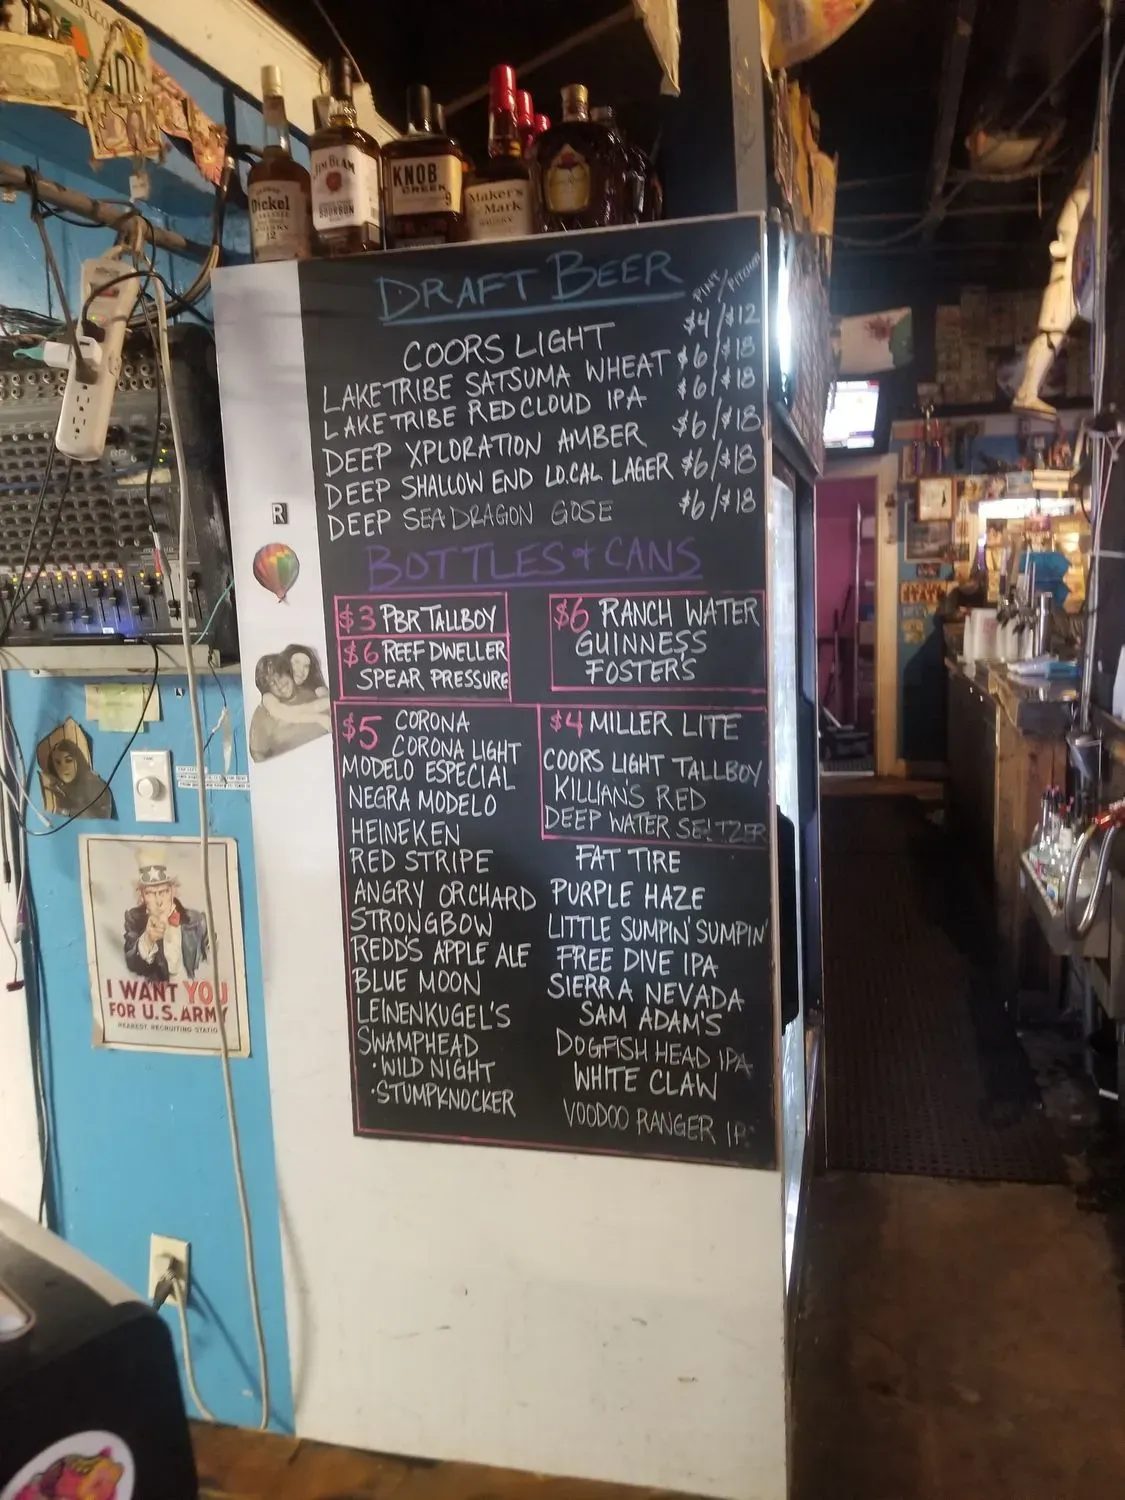 George
Dickel
WHISKY
12
JIM BEAM
BOURBON
KNOB
CREEK
9
Maker's
Mark
WHISKY
DRAFT BEER
PINT / PITCHER
COORS LIGHT $4/$12
LAKETRIBE SATSUMA WHEAT $6/$18
LAKETRIBE REDCLOUD IPA $6/$18
DEEP XPLORATION AMBER $6/$18
DEEP SHALLOW END LOCAL LAGER $6/$18
DEEP SEADRAGON GOSE $6/$18
BOTTLES & CANS
$3 PBR TALLBOY
$6 REEF DWELLER
SPEAR PRESSURE
$6 RANCH WATER
GUINNESS
FOSTER'S
$5 CORONA
CORONA LIGHT
MODELO ESPECIAL
NEGRA MODELO
HEINEKEN
RED STRIPE
ANGRY ORCHARD
STRONGBOW
REDD'S APPLE ALE
BLUE MOON
LEINENKUGEL'S
SWAMPHEAD
·WILD NIGHT
·STUMPKNOCKER
$4 MILLER LITE
COORS LIGHT TALLBOY
KILLIAN'S RED
DEEP WATER SELTZER
FAT TIRE
PURPLE HAZE
LITTLE SUMPIN' SUMPIN'
FREE DIVE IPA
SIERRA NEVADA
SAM ADAM'S
DOGFISH HEAD IPA
WHITE CLAW
VOODOO RANGER
R
I WANT YOU
FOR U.S. ARMY
NEAREST RECRUITING STATION